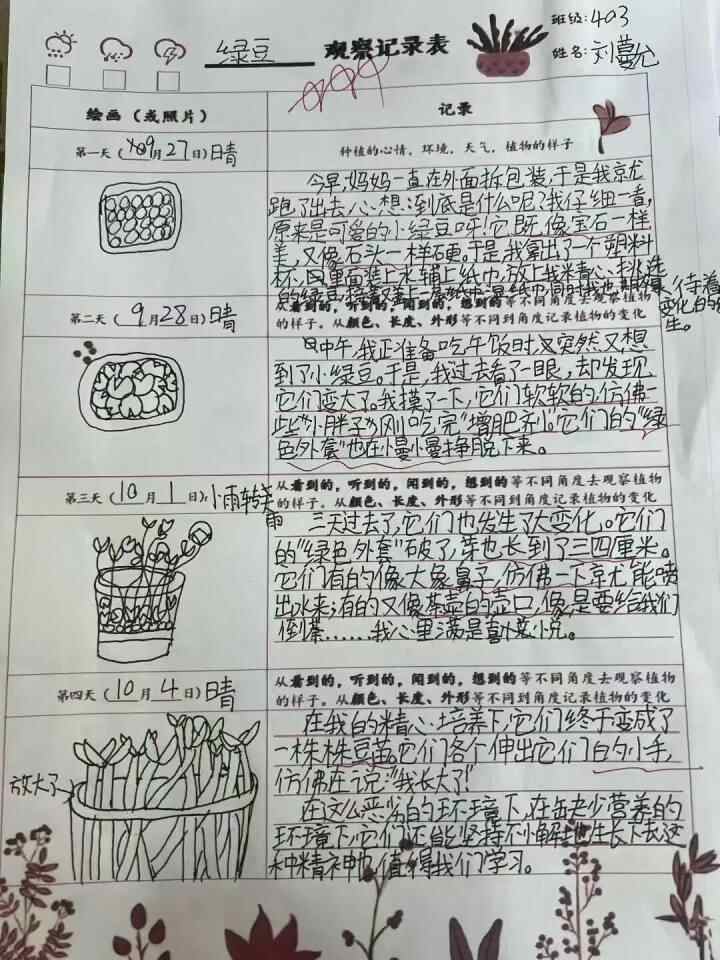 班级:403
绿豆 观察记录表
姓名:刘蔓允
绘画（或照片）
记录
第一天（09月27日）晴
种植的心情，环境，天气，植物的样子
今早，妈妈一直在外面拆包装，于是我就
跑了出去，心想：到底是什么呢？我仔细一看，
原来是可爱的小绿豆呀！它既像宝石一样
美，又像石头一样硬。于是，我拿出了一个塑料
杯，因里面装上水铺上纸巾，放上我米青心挑选
的绿豆
待着
变化的
生。
第二天（9月28日）晴
从看到的，听到的，闻到的，想到的等不同角度去观察植物
的样子。从颜色、长度、外形等不同到角度记录植物的变化
中午，我正准备吃午饭时，突然又想
到了小绿豆。于是，我过去看了一眼，却发现
它们变大了。我摸了一下，它们软软的，仿佛一
些“小胖子”刚吃完“增肥剂”。它们的“绿
色外套”也在小曼小曼挣脱下来。
第三天（10月1日）：小雨转
雨
从看到的，听到的，闻到的，想到的等不同角度去观察植物
的样子。从颜色、长度、外形等不同到角度记录植物的变化
三天过去了，它们也发生了大变化。它们
的“绿色外套”破了，芽也长到了三四厘米。
它们有的像大象鼻子，仿佛一下就能喷
出水来；有的又像茶壶的壶口，像是要给我们
倒茶……我心里满是喜悦。
第四天（10月4日）晴
从看到的，听到的，闻到的，想到的等不同角度去观察植物
的样子。从颜色、长度、外形等不同到角度记录植物的变化
放大了
在我的精心培养下，它们终于变成了
一株株豆苗。它们各个伸出它们白的小手，
仿佛在说：“我长大了！”
在这么恶劣的环境下，在缺少营养的
环境下，它们还能坚持不懈地生长下去，这
种精神也值得我们学习。